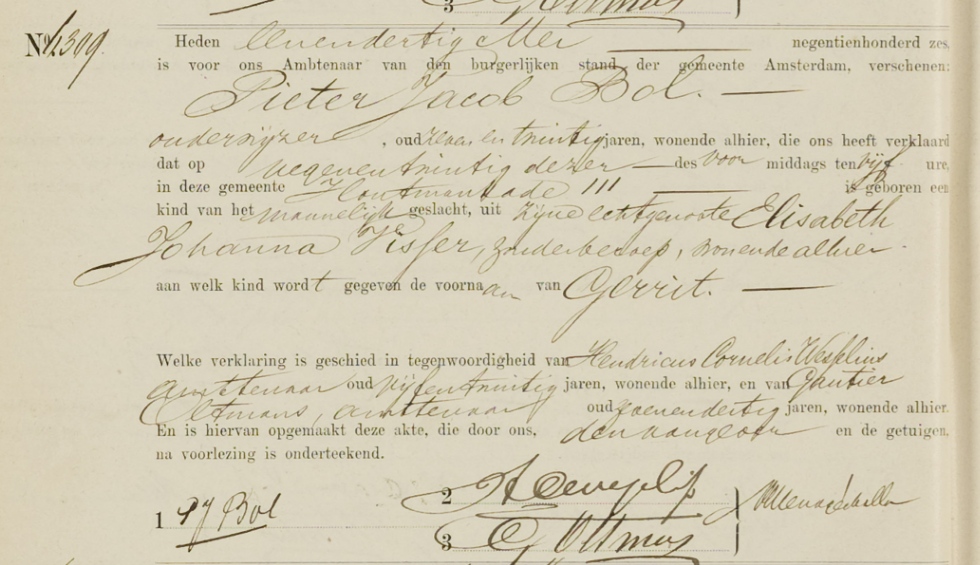 3
No. 4309. Heden eenendertig Mei negentienhonderd zes,
is voor ons Ambtenaar van den burgerlijken stand der gemeente Amsterdam, verschenen:
Pieter Jacob Bol.
onderwijzer, oud zeven en twintig jaren, wonende alhier, die ons heeft verklaard
dat op negenentwintig dezer des voor middags ten vijf ure,
in deze gemeente Houtmankade 111 is geboren een
kind van het mannelijk geslacht, uit zijne echtgenoote Elisabeth
Johanna Visser, zonder beroep, wonende alhier.
aan welk kind wordt gegeven de voornaam van Gerrit.
Welke verklaring is geschied in tegenwoordigheid van Hendricus Cornelis
ambtenaar oud vijfentwintig jaren, wonende alhier, en van Gautier
Oltmans, ambtenaar oud jaren, wonende alhier.
En is hiervan opgemaakt deze akte, die door ons, den aangever en de getuigen,
na voorlezing is onderteekend.
1 PJ Bol
2
3 G Oltmans